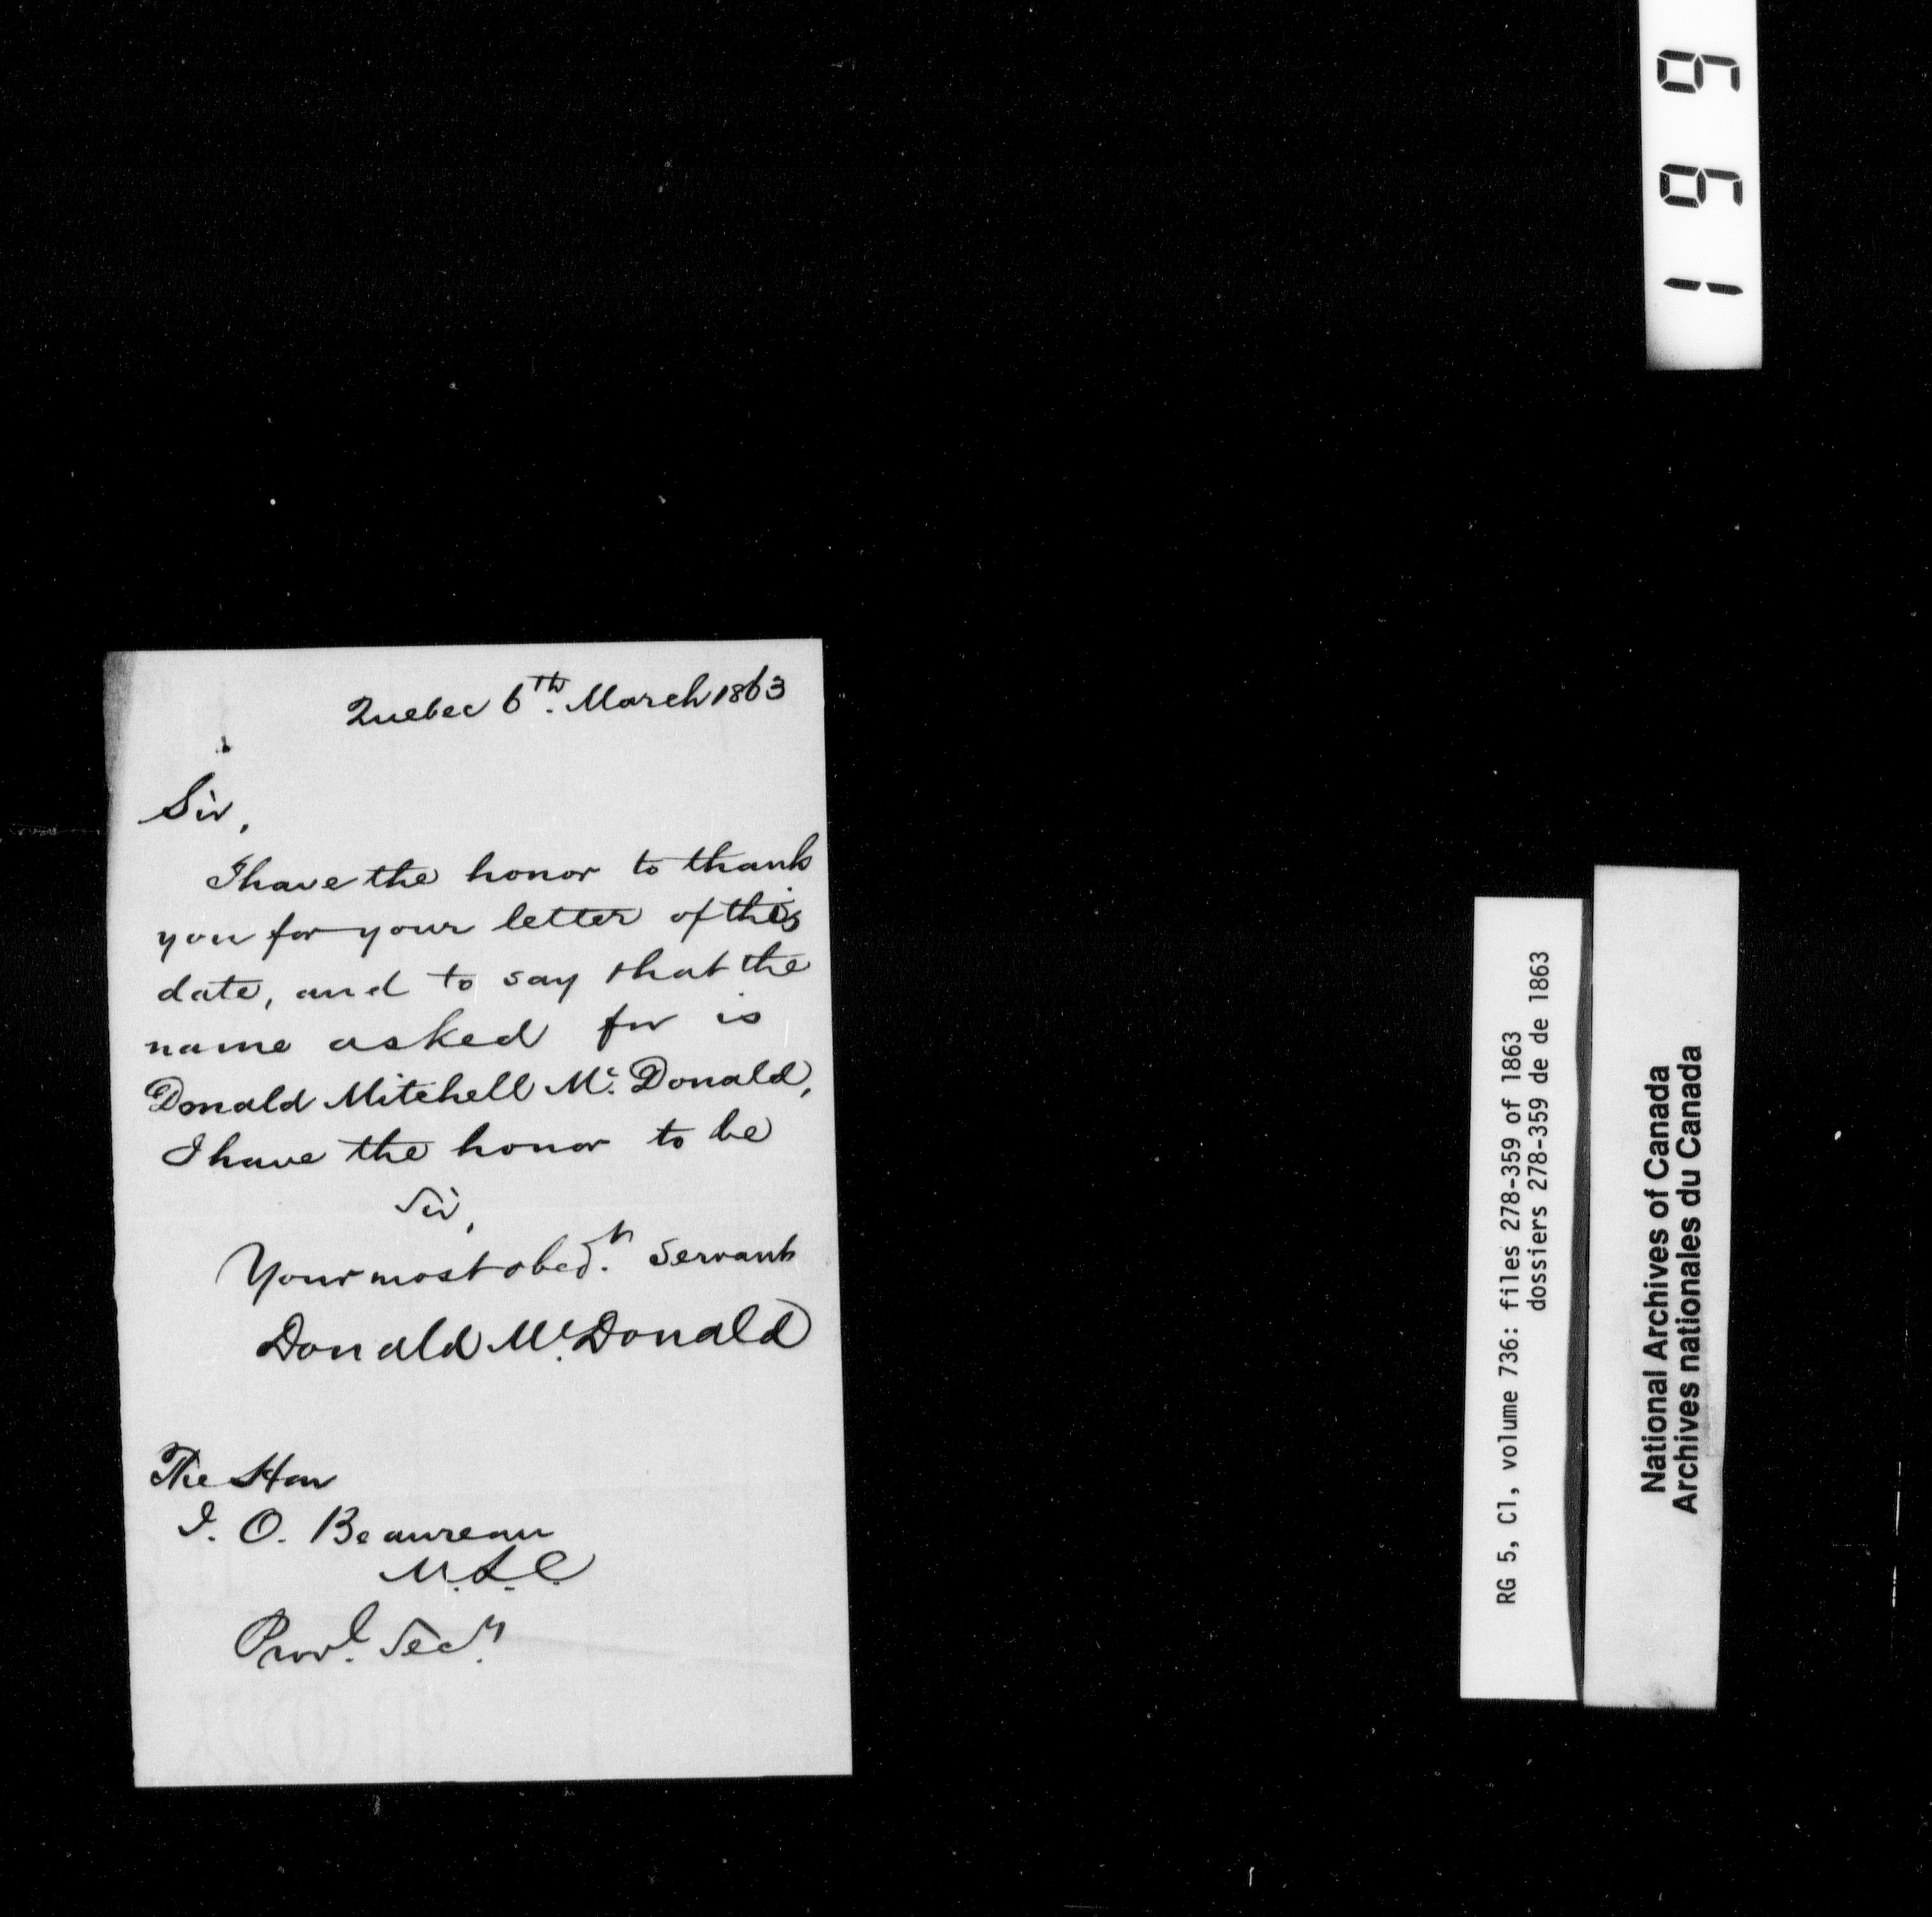 Quebec 6th. March 1863
Sir,
I have the honor to thank
you for your letter of this
date, and to say that the
name asked for is
Donald Mitchell Mc. Donald,
I have the honor to be
Sir,
Your most obedt. Servant
Donald Mc.Donald
The Hon
J. O. Beaureau
M.L.C.
Provl. Secy.
661
RG 5, C1, volume 736: files 278-359 of 1863
dossiers 278-359 de de 1863
National Archives of Canada
Archives nationales du Canada